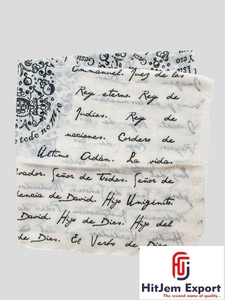 Emmanuel. Juez de las
Rey eterno. Rey de
Judíos. Rey de
naciones. Cordero de
Último Adán. La vida.
vador. Señor de Todos. Señor de
lencia de David. Hijo Unigénito
David. Hijo de Dios. Hijo del
de Dios. El Verbo de Dios
todo no
HitJem Export
The second name of quality...